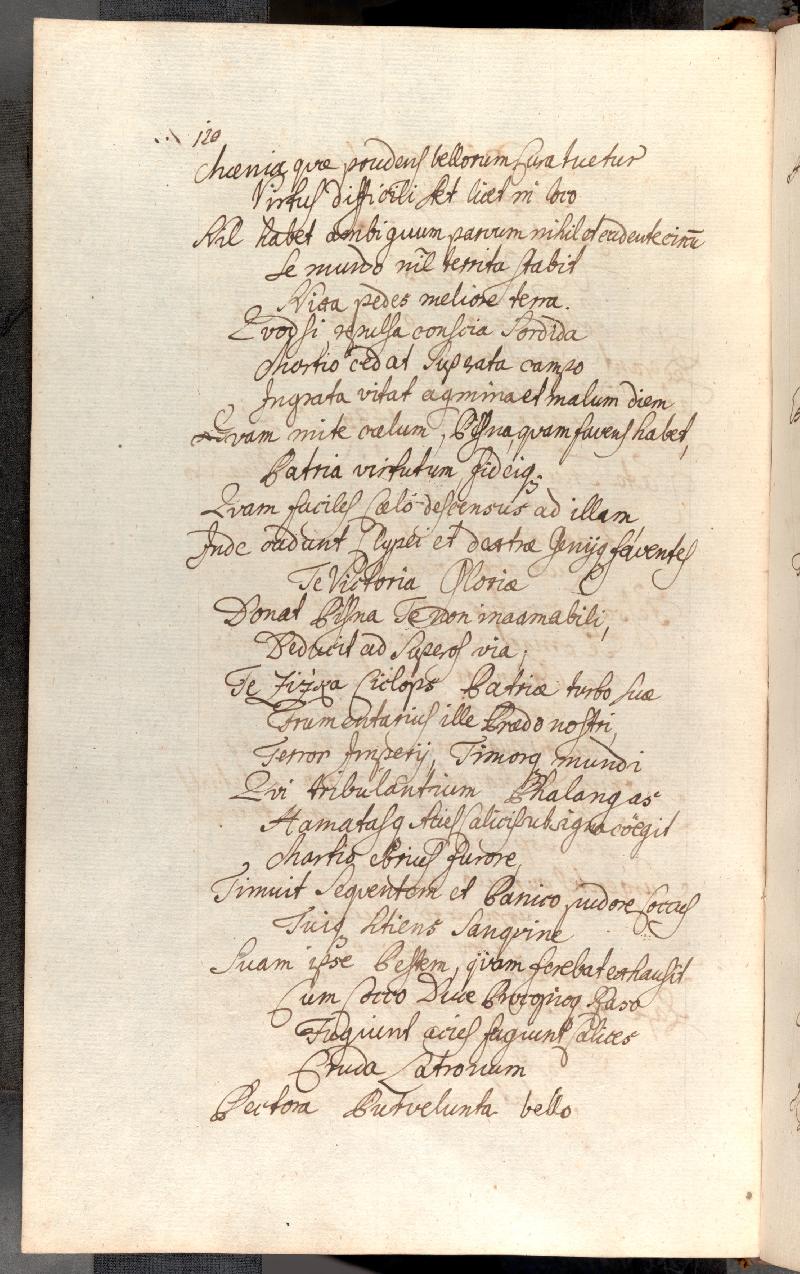 120
Mœnia quæ prudens bellorum Cura tuetur
Virtus difficili stet licet in loco
Nil habet ambiguum parvum nihil ostendente
Se mundo nil territa stabit
Nixa pedes meliore terra.
Qvodsi repulsa conscia Sordida
Martio cedat Superata campo
Ingrata vitat agmina et malum diem
Qvam mite cœlum, Bisna, quam favens habet,
Patria virtutum, fideiq;
Qvam faciles Cælo descensus ad illam
Inde cadunt Clypei et dextræ Genijq faventes
Te Victoria Gloriæ
Donat Bisna Te non inaamabili,
Deducit ad Superos via;
Te Zizxa Ciclops Patriæ turbo suæ
Frumentarius ille Prædo nostri,
Terror Imperij, Timorq mundi
Qvi tribulantium Phalangas
Hamatasq Acies Calicis sub signa cöegit
Martis ebrius furore,
Timuit Seqventem et Panico pudore
Tuiq sitiens Sangvine
Suam ipse Pestem, qvam ferebat exhausit
Cum Cocco Duce Procopioq Raso
Fugiunt acies fugiunt Calices
Cruda Latronum
Pectora Putrvelunta bello